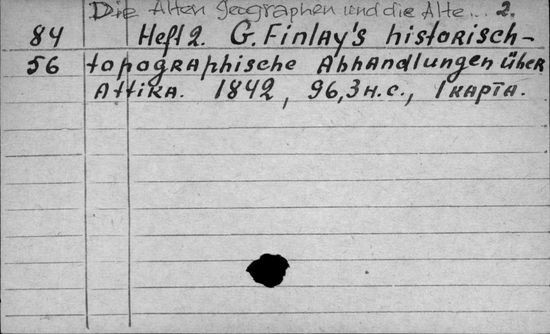 Die Alten Geographen und die Alte... 2.
84 Heft 2. G. Finlay's historisch-
56 topographische Abhandlungen über
Attika. 1842, 96,3 н.с., 1 карта.